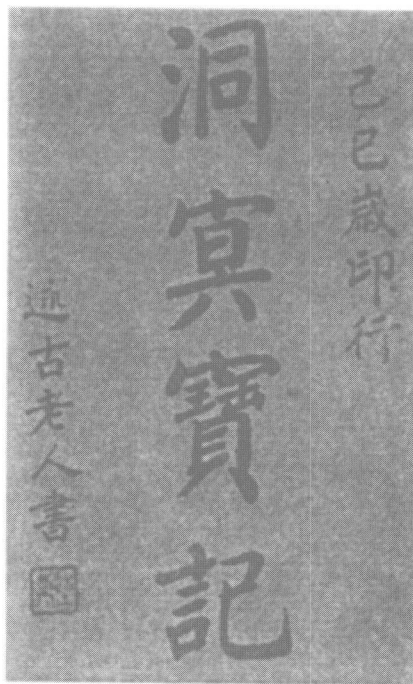 己巳歲印行
洞冥寶記
述古老人書